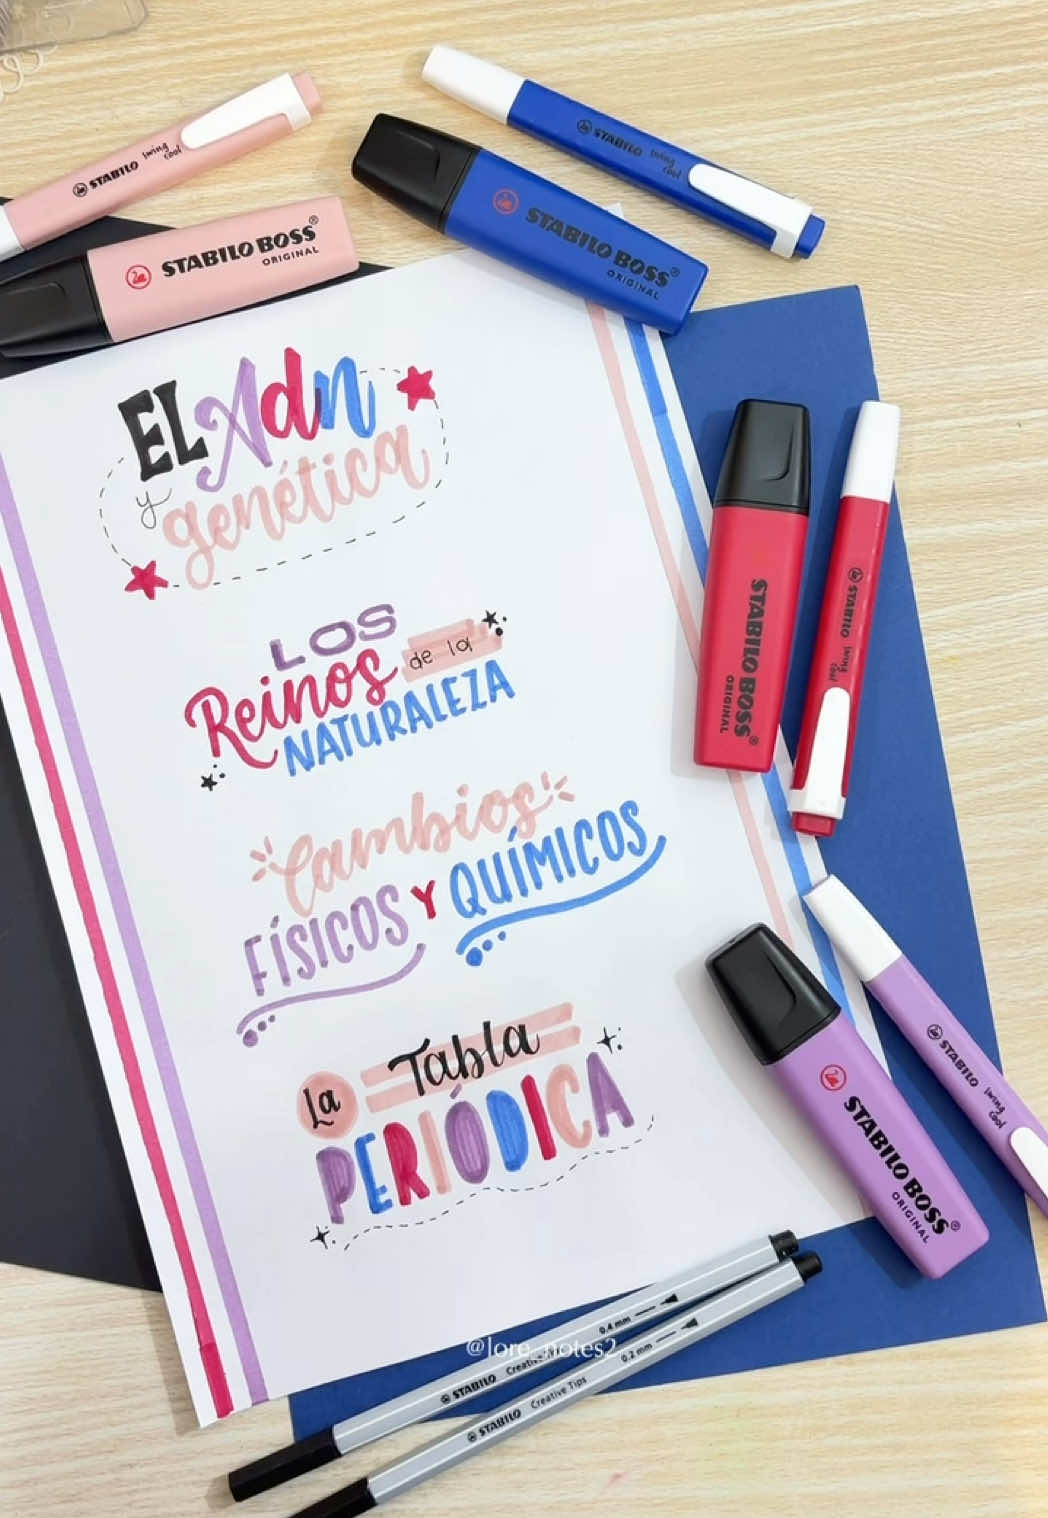 STABILO swing cool
STABILO swing cool
STABILO BOSS®
ORIGINAL
STABILO BOSS®
ORIGINAL
EL Adn
y genética
LOS
Reinos de la
NATURALEZA
STABILO BOSS®
ORIGINAL
STABILO swing cool
Cambios
FÍSICOS Y QUÍMICOS
La Tabla
PERIÓDICA
STABILO BOSS®
ORIGINAL
STABILO swing cool
@lore_notes2_
STABILO Creative 0.4 mm
STABILO Creative Tips 0.2 mm